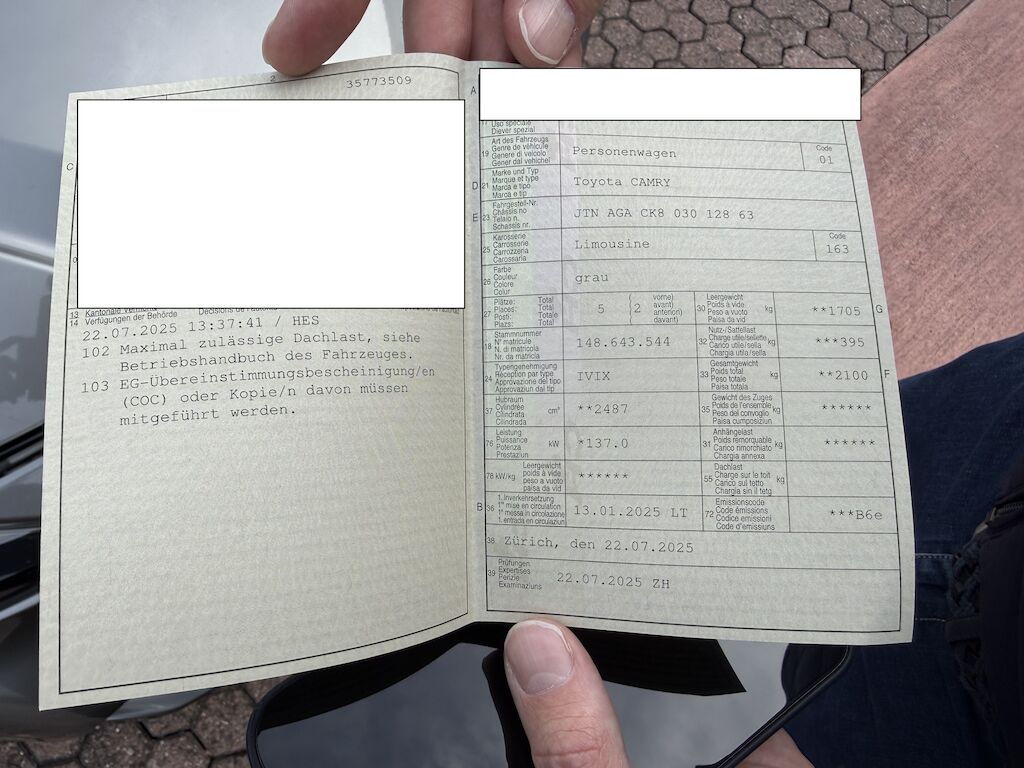 2
35773509
A
C
13 Kantonale Vermerke
14 Verfügungen der Behörde
22.07.2025 13:37:41 / HES
102 Maximal zulässige Dachlast, siehe
Betriebshandbuch des Fahrzeuges.
103 EG-Übereinstimmungsbescheinigung/en
(COC) oder Kopie/n davon müssen
mitgeführt werden.
Uso speciale
Diever spezial
19 Art des Fahrzeugs
Genre de véhicule
Genere di veicolo
Gener dal vehichel
Personenwagen
Code
01
D 21 Marke und Typ
Marque et type
Marca e tipo
Marca e tip
Toyota CAMRY
E 23 Fahrgestell-Nr.
Châssis no
Telaio n.
Schassis nr.
JTN AGA CK8 030 128 63
25 Karosserie
Carrosserie
Carrozzeria
Carossaria
Limousine
Code
163
26 Farbe
Couleur
Colore
Colur
grau
27 Plätze: Total
Places: Total
Posti: Totale
Plazs: Total
5 (2 vorne)
avant)
anteriori)
davant)
30 Leergewicht
Poids à vide
Peso a vuoto
Paisa da vid
kg
**1705
G
18 Stammnummer
N° matricule
N. di matricola
Nr. da matricla
148.643.544
32 Nutz-/Sattellast
Charge utile/sellette
Carico utile/sella
Chargia utila/sella
kg
***395
24 Typengenehmigung
Réception par type
Approvazione del tipo
Approvaziun dal tip
IVIX
33 Gesamtgewicht
Poids total
Peso totale
Paisa totala
kg
**2100
F
37 Hubraum
Cylindrée
Cilindrata
Cilindrada
cm³
**2487
35 Gewicht des Zuges
Poids de l'ensemble
Peso del convoglio
Paisa cumposiziun
kg
******
76 Leistung
Puissance
Potenza
Prestaziun
kW
*137.0
31 Anhängelast
Poids remorquable
Carico rimorchiato
Chargia annexa
kg
******
78 kW/kg Leergewicht
poids à vide
peso a vuoto
paisa da vid
******
55 Dachlast
Charge sur le toit
Carico sul tetto
Chargia sin il tetg
kg
B 36 1. Inverkehrsetzung
1re mise en circulation
1a messa in circolazione
1. entrada en circulaziun
13.01.2025 LT
72 Emissionscode
Code émissions
Codice emissioni
Code d'emissiuns
***B6e
38 Zürich, den 22.07.2025
39 Prüfungen
Expertises
Perizie
Examinaziuns
22.07.2025 ZH